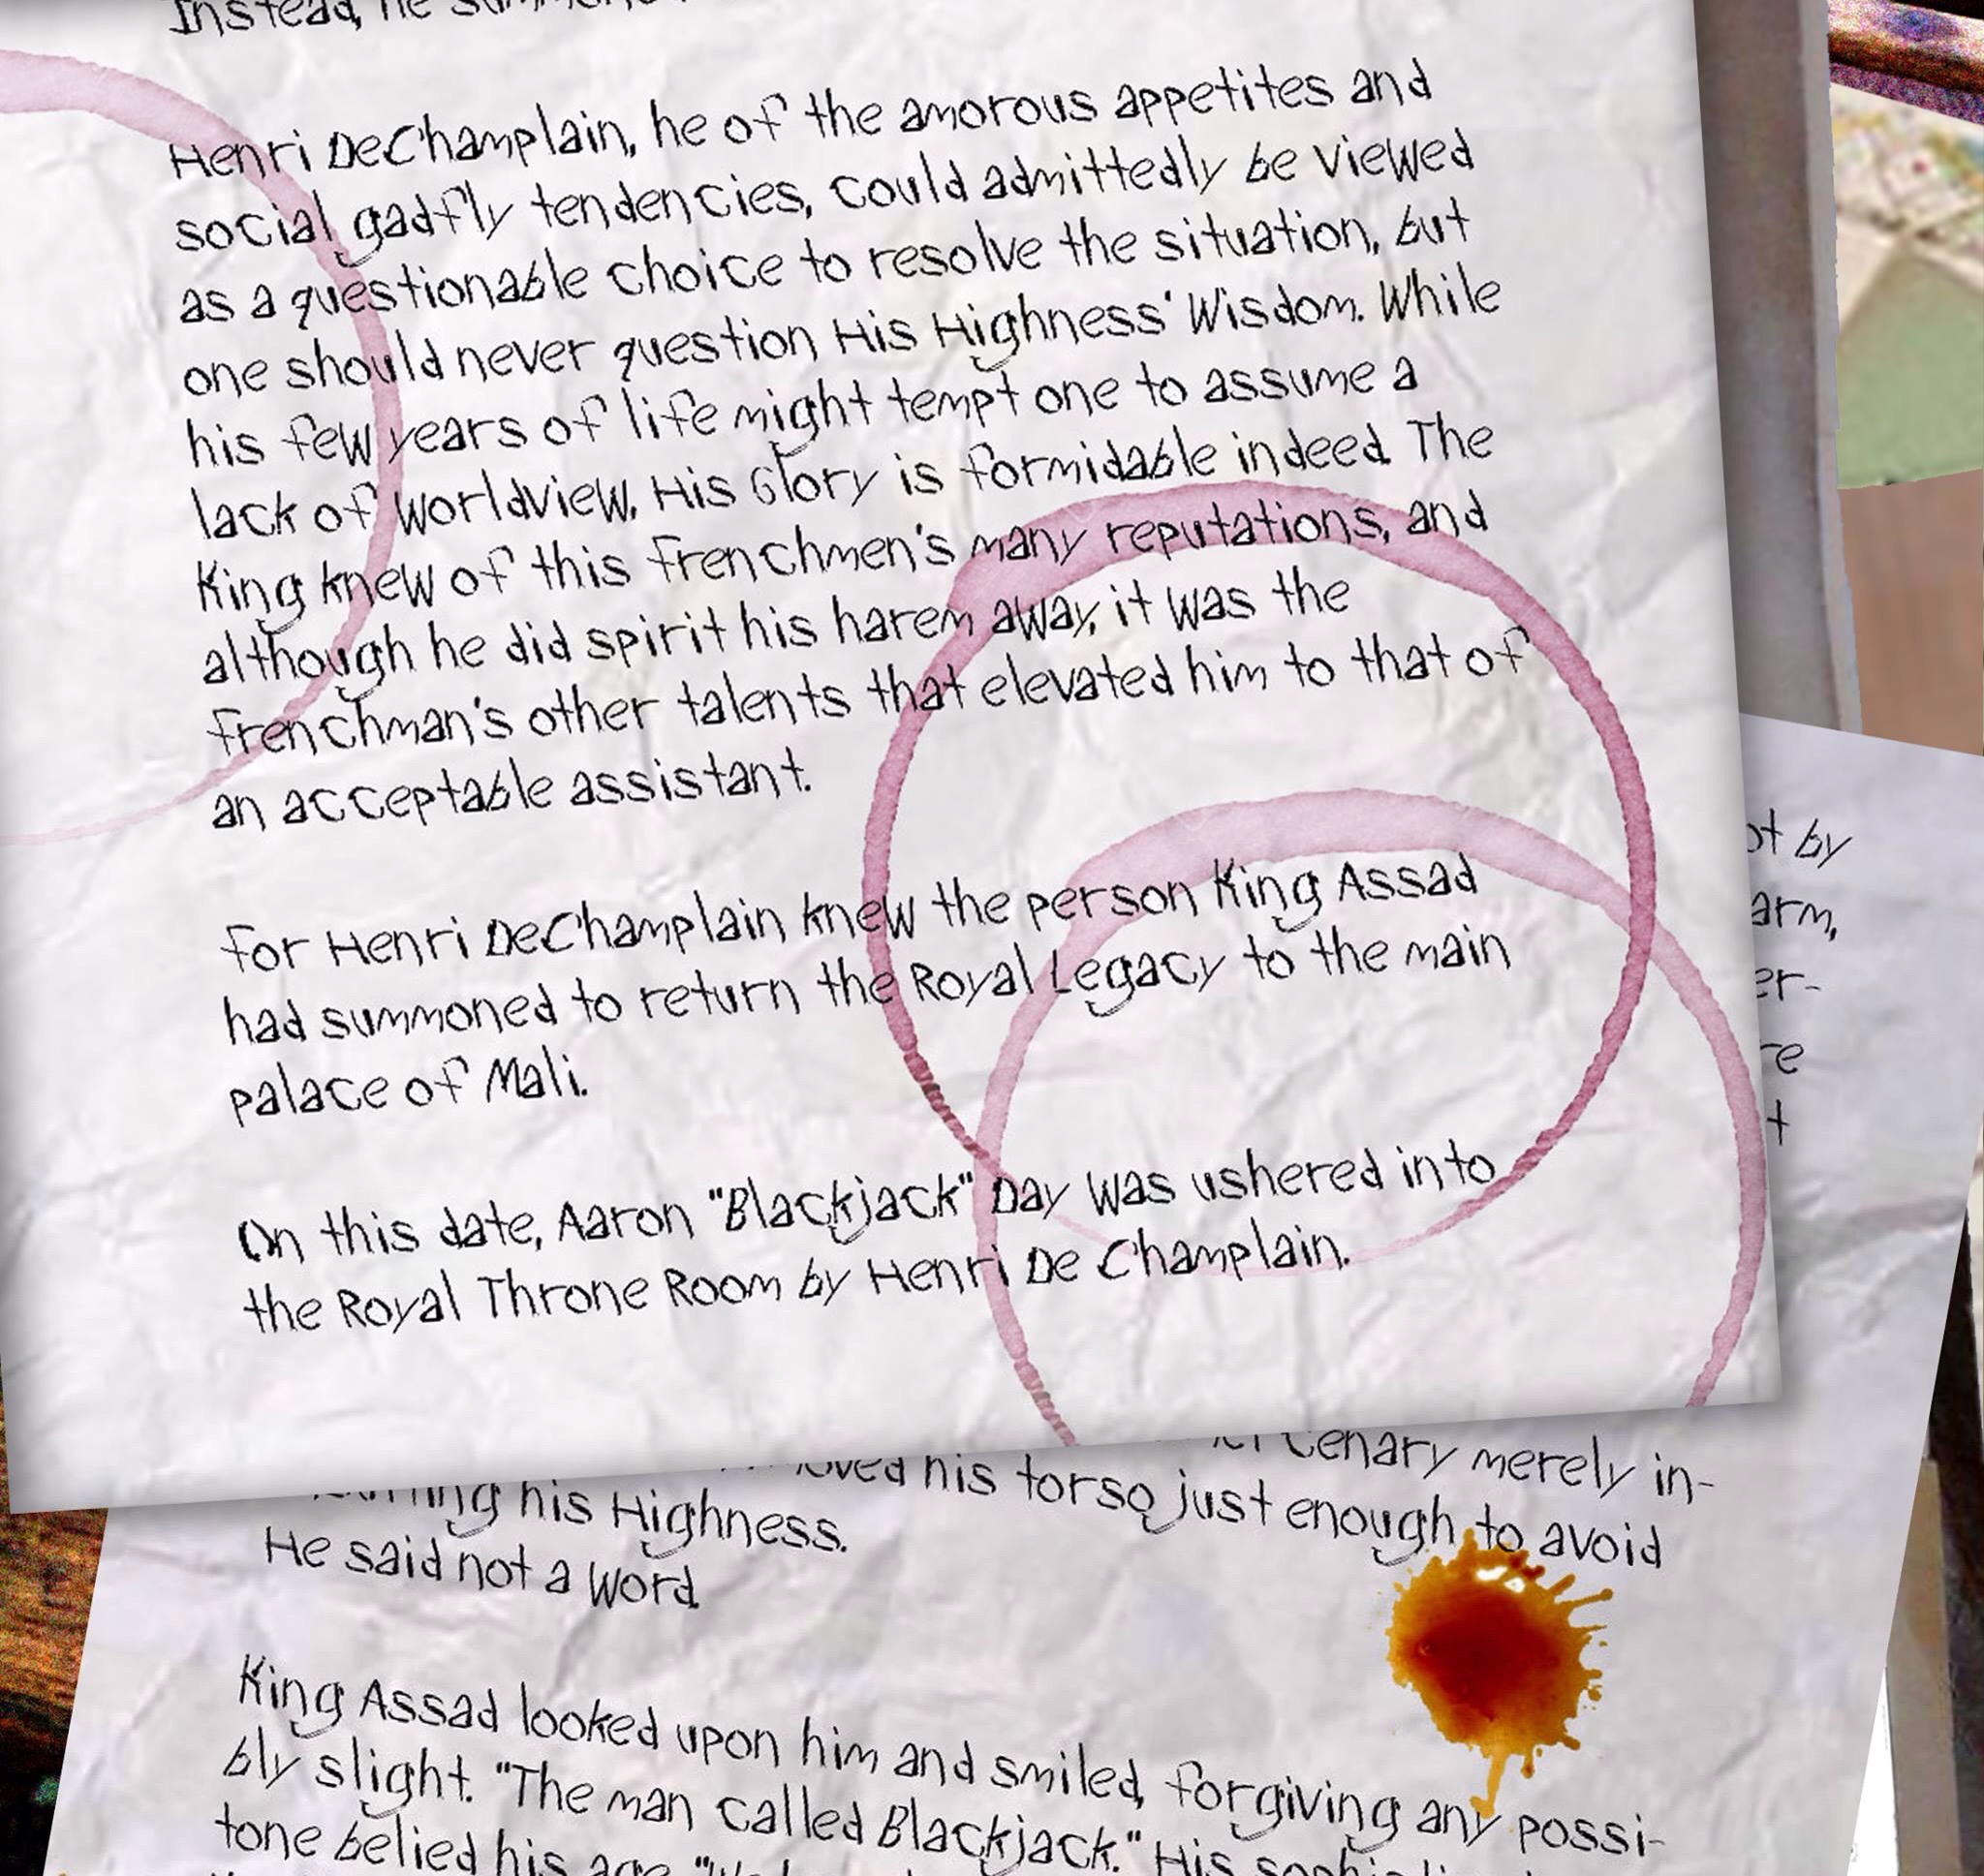 Instead, he
Henri DeChamplain, he of the amorous appetites and
social gadfly tendencies, could admittedly be viewed
as a questionable choice to resolve the situation, but
one should never question His Highness' Wisdom. While
his few years of life might tempt one to assume a
lack of worldview, His Glory is formidable indeed. The
King knew of this Frenchmen's many reputations, and
although he did spirit his harem away, it was the
Frenchman's other talents that elevated him to that of
an acceptable assistant.
For Henri DeChamplain knew the person King Assad
had summoned to return the Royal Legacy to the main
palace of Mali.
On this date, Aaron "Blackjack" Day was ushered into
the Royal Throne Room by Henri De Champlain.
by
arm,
er-
re
t
merely in-
his torso just enough to avoid
his Highness.
He said not a word.
King Assad looked upon him and smiled, forgiving any possi-
bly slight. "The man called Blackjack." His
tone belied his age.